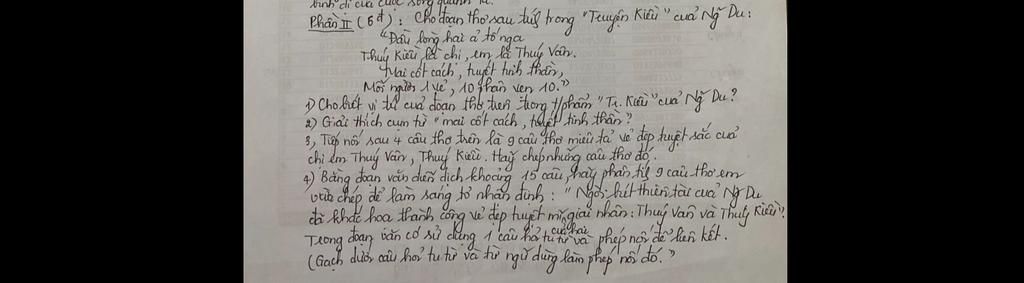 bình dị của cuộc sống quanh ta.
Phần II (6đ): Cho đoạn thơ sau trích trong "Truyện Kiều" của Ng̃ Du:
"Đầu lòng hai ả tố nga
Thuý Kiều là chị, em là Thuý Vân.
Mai cốt cách, tuyết tinh thần,
Mỗi người 1 vẻ, 10 phân vẹn 10."
1) Cho biết vị trí của đoạn thơ trên trong t/phẩm "Tr. Kiều" của Ng̃ Du?
2) Giải thích cụm từ "mai cốt cách, tuyết tinh thần"?
3, Tiếp nối sau 4 câu thơ trên là 9 câu thơ miêu tả vẻ đẹp tuyệt sắc của
chị em Thuý Vân, Thuý Kiều. Hãy chép những câu thơ đó.
4) Bằng đoạn văn diễn dịch khoảng 15 câu, hãy phân tích 9 câu thơ em
vừa chép để làm sáng tỏ nhận định: "Ngòi bút thiên tài của Ng̃ Du
đã khắc hoạ thành công vẻ đẹp tuyệt mĩ của hai giai nhân: Thuý Vân và Thuý Kiều".
Trong đoạn văn có sử dụng 1 câu hỏi tu từ và phép nối để liên kết.
(Gạch dưới câu hỏi tu từ và từ ngữ dùng làm phép nối đó."